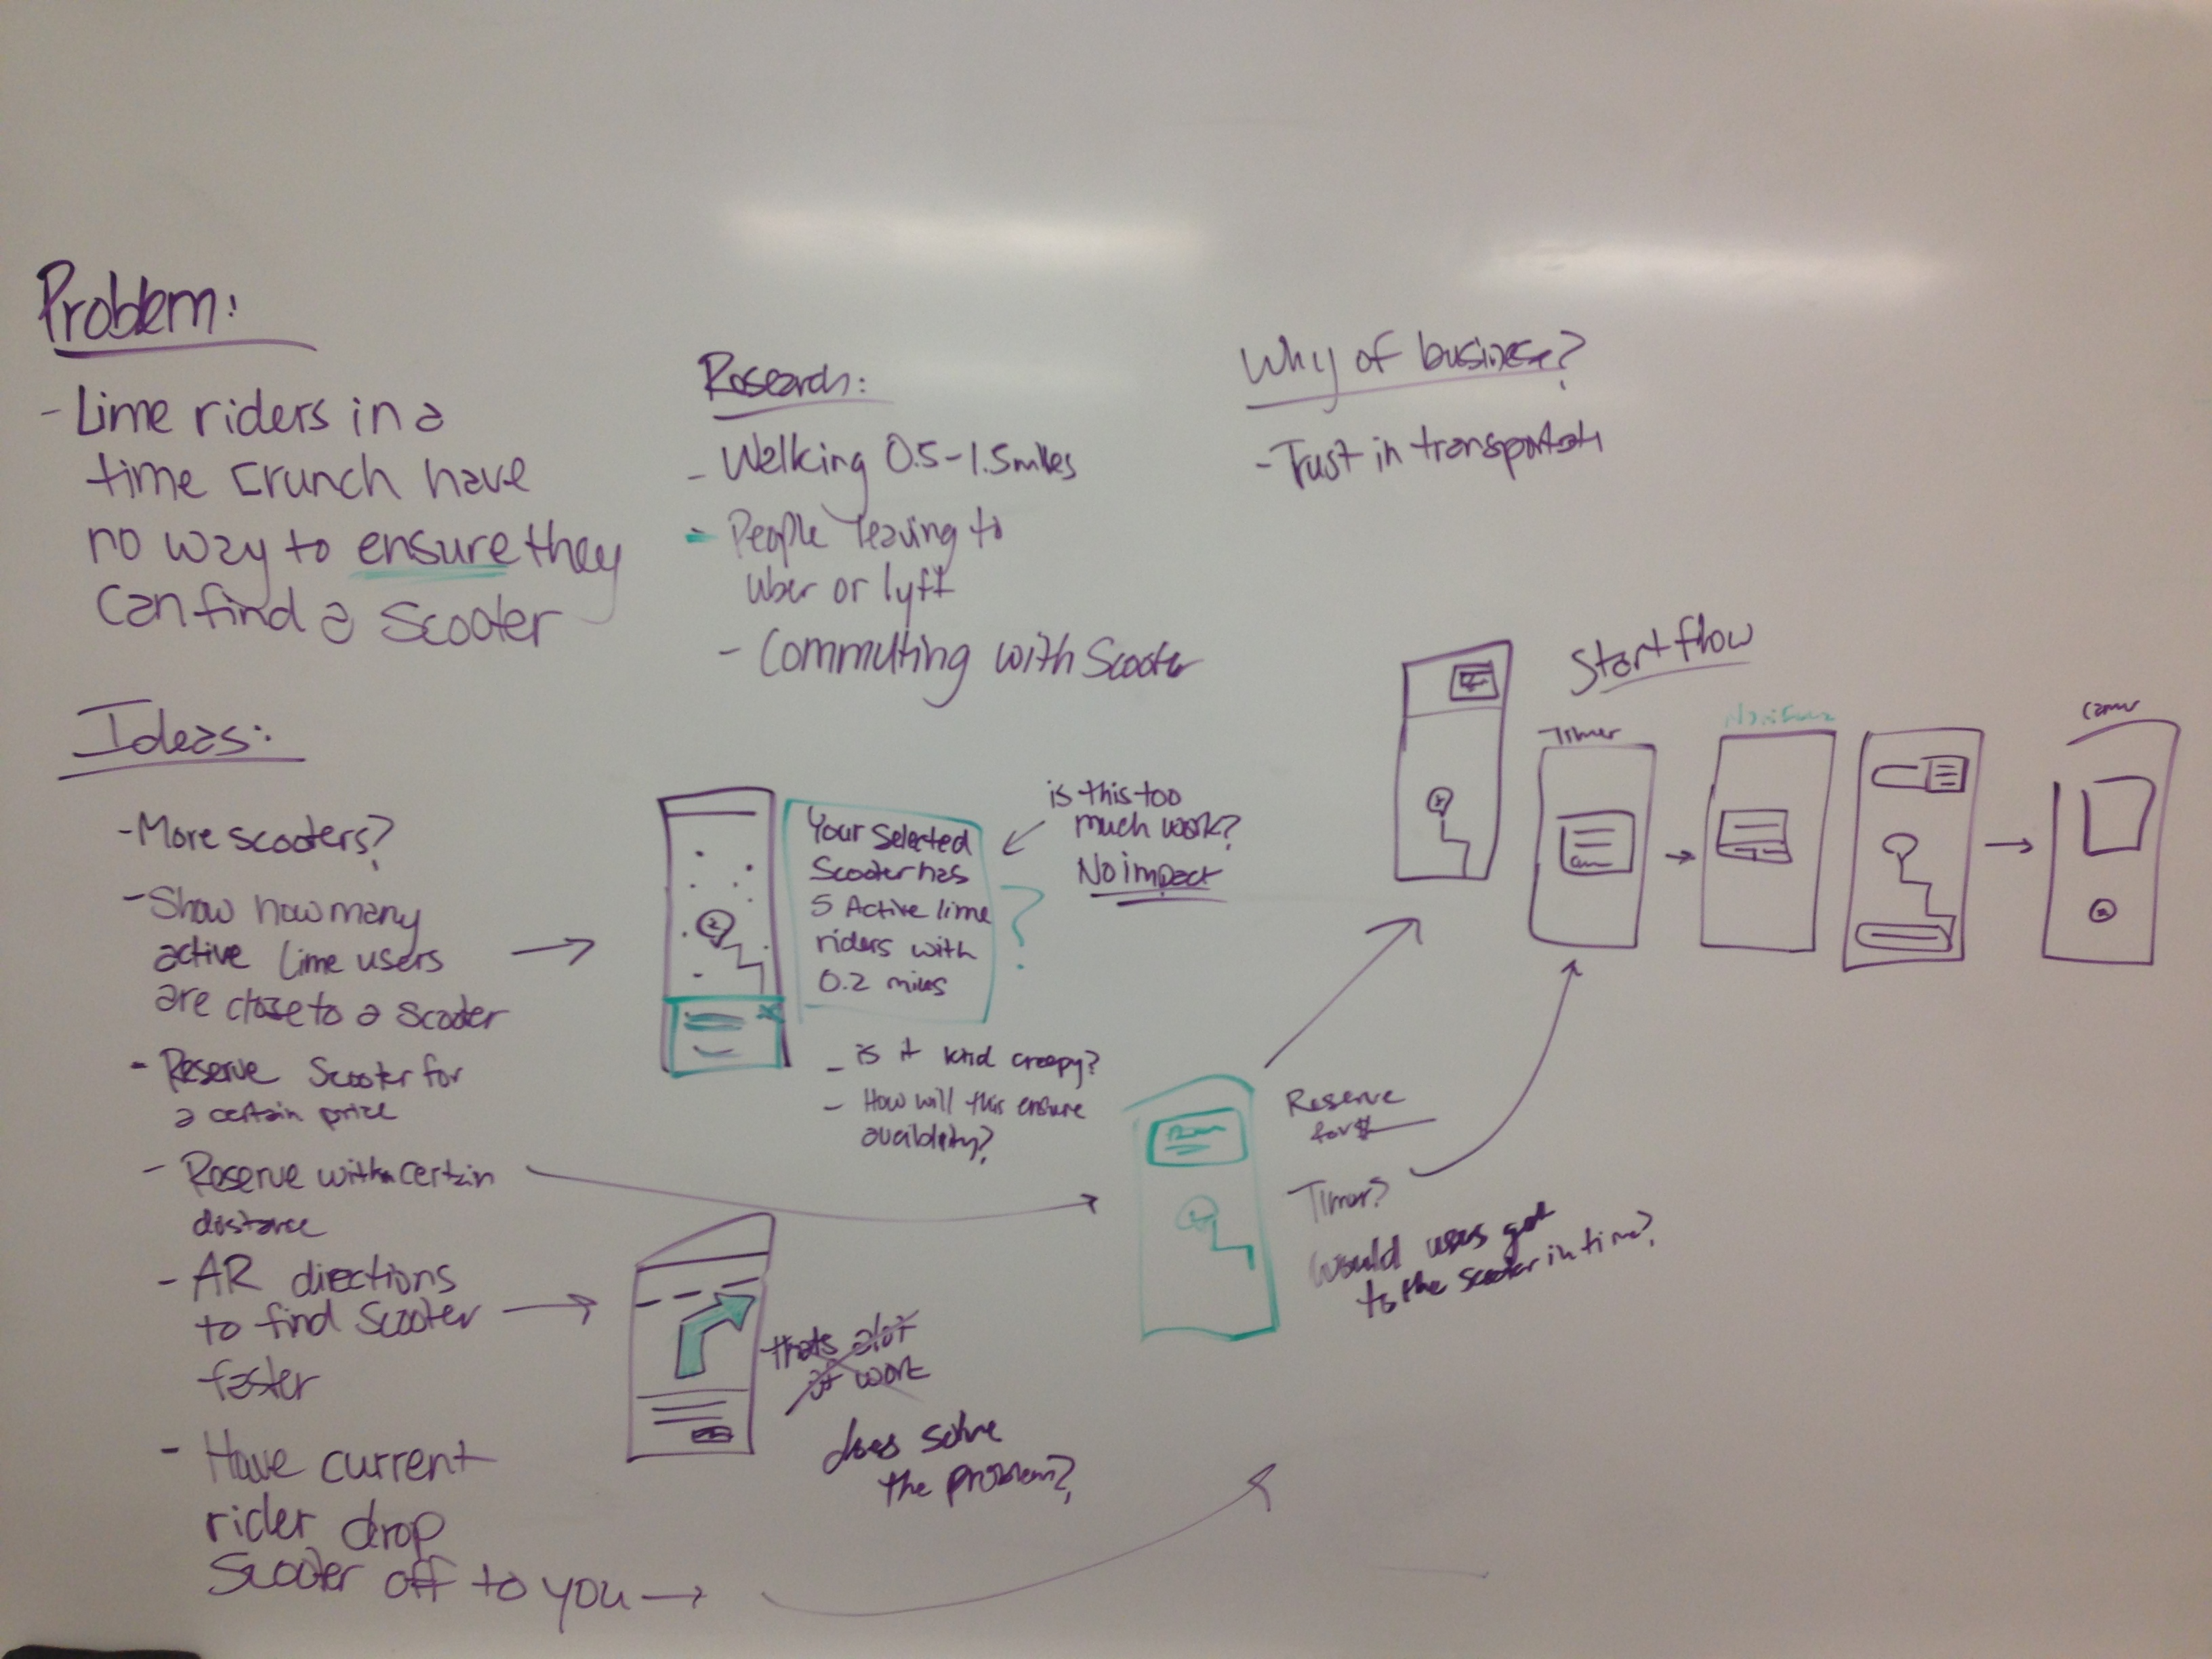 Problem:
- Lime riders in a
time crunch have
no way to ensure they
can find a scooter
Research:
- Walking 0.5-1.5 miles
- People leaving to
uber or lyft
- Commuting with Scooter
Why of business?
- Trust in
Ideas:
- More scooters?
- Show how many
active lime users
are close to a scooter
- Reserve Scooter for
a certain price
- Reserve with certain
distance
- AR directions
to find Scooter
faster
- Have current
rider drop
Scooter off to you
Your selected
Scooter has
5 Active lime
riders with
0.2 miles
?
is this too
much work?
No impact
- is it kind creepy?
- How will this ensure
thats alot
of work
does solve
the problem?
Reserve
for $
Timer?
Would users get
to the scooter in time?
Start flow
Timer